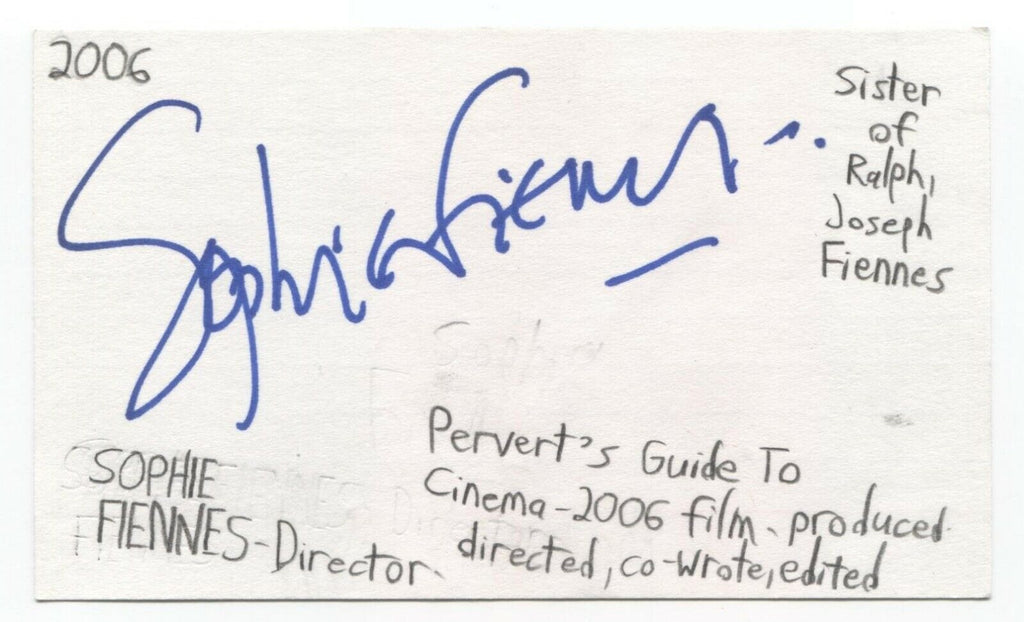 2006
Sophie Fiennes
Sister
of
Ralph,
Joseph
Fiennes
SOPHIE
FIENNES-Director
Pervert's Guide To
Cinema-2006 film. produced
directed, co-wrote, edited